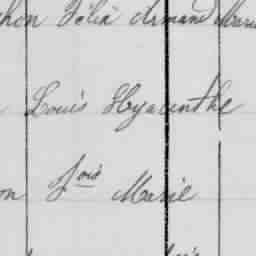 hon Félix Armand Marie
Louis Hyacinthe
on Fois Marie